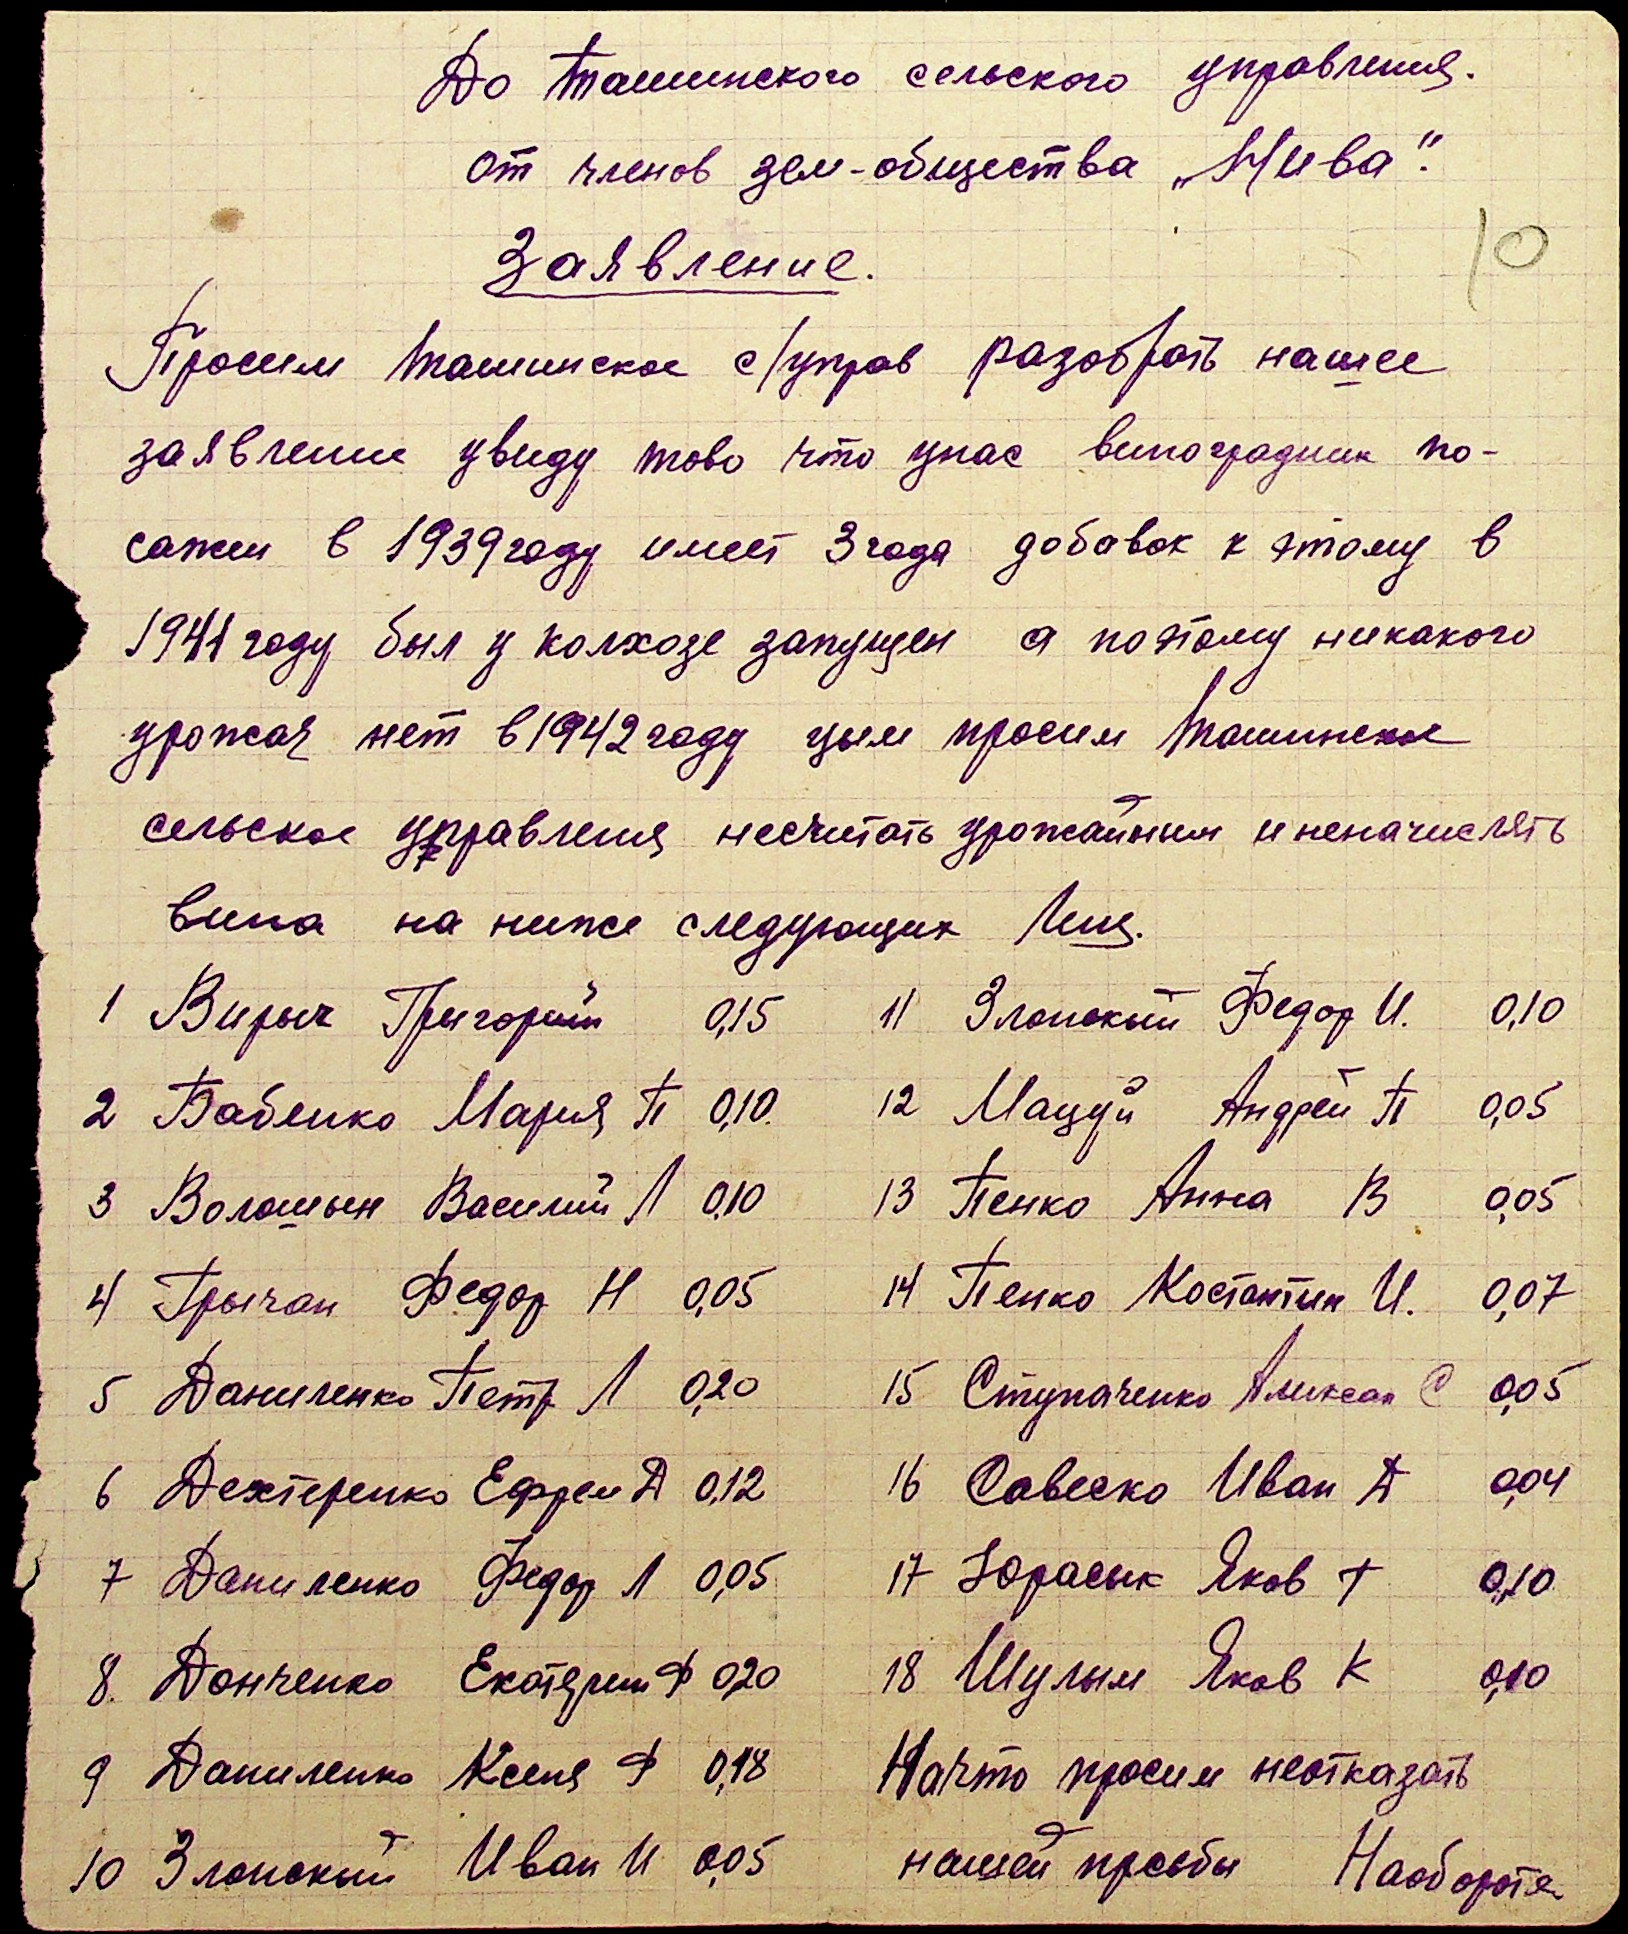 До Ташинского сельского управления.
от членов зем-общества „Нива".
10
Заявление.
Просим Ташинское с/управ разобрать нашее
заявление увиду тово что унас виноградник по-
сажен в 1939 году имеет 3 года добавок к этому в
1941 году был у колхозе запущен а поэтому никакого
урожая нет в 1942 году цым просим Ташинское
сельское управления несчитать урожайным и неначислять
вина на ниже следующих лиц.
1 Вирыч Григорий 0,15
2 Бабенко Мария П 0,10
3 Волошын Василий Л 0,10
4 Грычан Федор Н 0,05
5 Даниленко Петр Л 0,20
6 Дехтеренко Ефрем Д 0,12
7 Даниленко Федор Л 0,05
8. Донченко Екатерин Ф 0,20
9 Даниленко Ксеня Ф 0,18
10 Злонский Иван И 0,05
11 Злонский Федор И. 0,10
12 Мацуй Андрей П 0,05
13 Пенко Анна В 0,05
14 Пенко Костантин И. 0,07
15 Ступаченко Алексан С 0,05
16 Савеско Иван Д 0,04
17 Юрасык Яков Т 0,10
18 Шулым Яков К 0,10
Начто просим неотказать
нашей прозьбы Наобороте